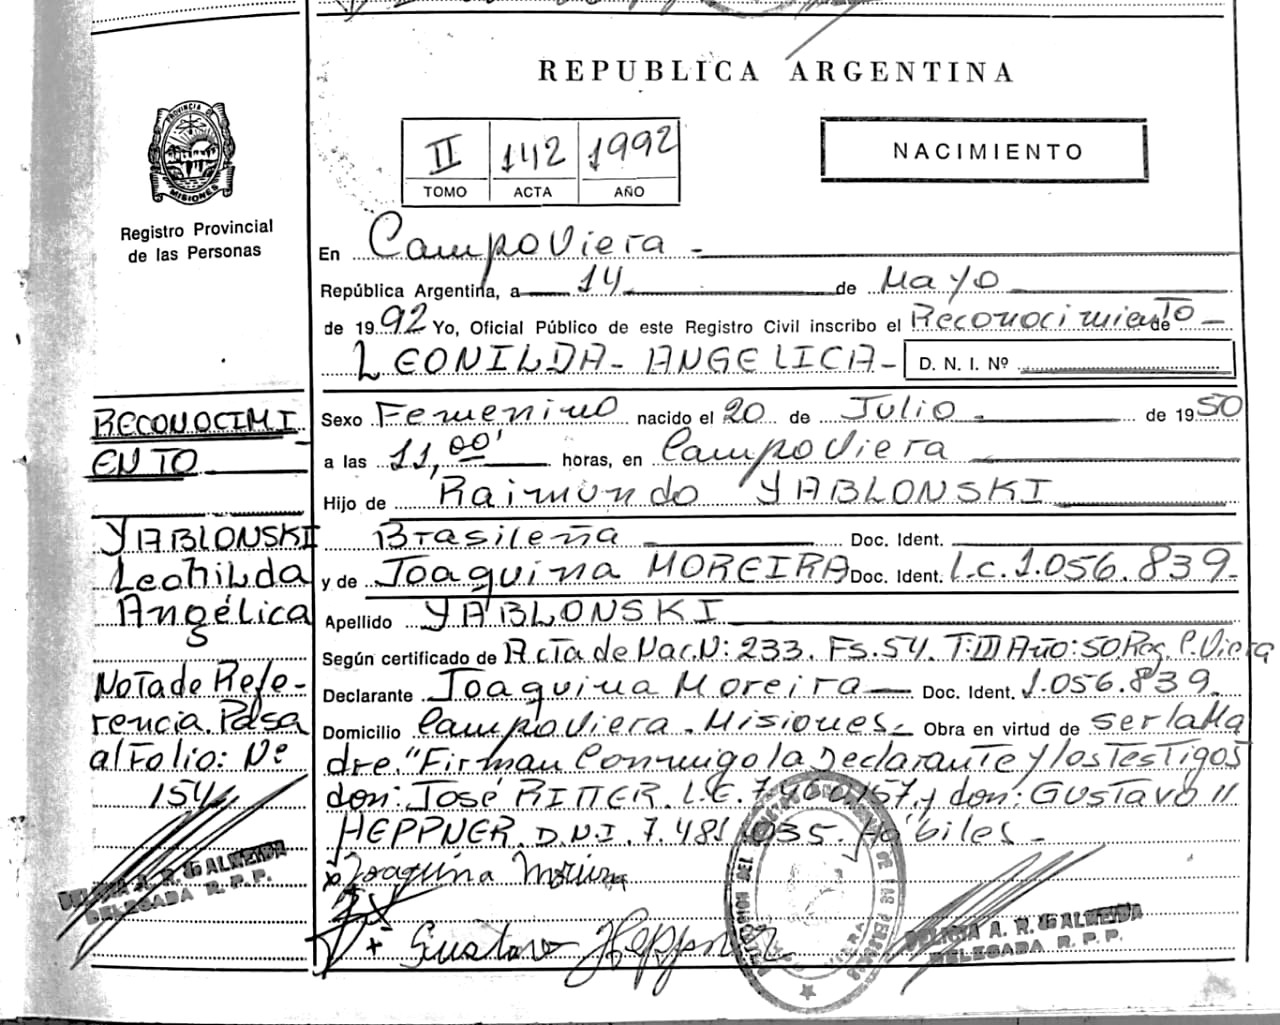 REPUBLICA ARGENTINA
PROVINCIA DE
MISIONES
Registro Provincial
de las Personas
II 142 1992
TOMO ACTA AÑO
NACIMIENTO
En CampoViera -
República Argentina, a 14 de Mayo
de 1992 Yo, Oficial Público de este Registro Civil inscribo el Reconocimiento de
LEONILDA - ANGELICA - D. N. I. Nº
Sexo Femenino nacido el 20 de Julio de 1950
a las 11,00' horas, en CampoViera
Hijo de Raimundo YABLONSKI
Brasileña Doc. Ident.
y de Joaquina MOREIRA Doc. Ident. L.c. 1.056.839-
Apellido YABLONSKI
Según certificado de Acta de Nac.N: 233. Fs.54. T:III Año:50 Reg. C.Viera
Declarante Joaquina Moreira Doc. Ident. 1.056.839.
Domicilio CampoViera. Misiones - Obra en virtud de ser la Ma
dre." Firman Conmigo la Declarante y los Testigos
don: José RITTER. L.E. 7.460.157, y don: GUSTAVO "
HEPPNER. D.N.I. 7.481.035. Hábiles -
x Joaquina Moreira
+ Gustavo Heppner
A. R. G ALMEIDA
DELEGADA R. P. P.
RECONOCIMI
ENTO
YABLONSKI
Leonilda
Angélica
Nota de Refe-
rencia. Pasa
al Folio: Nº
154
A. R. G ALMEIDA
DELEGADA R. P. P.